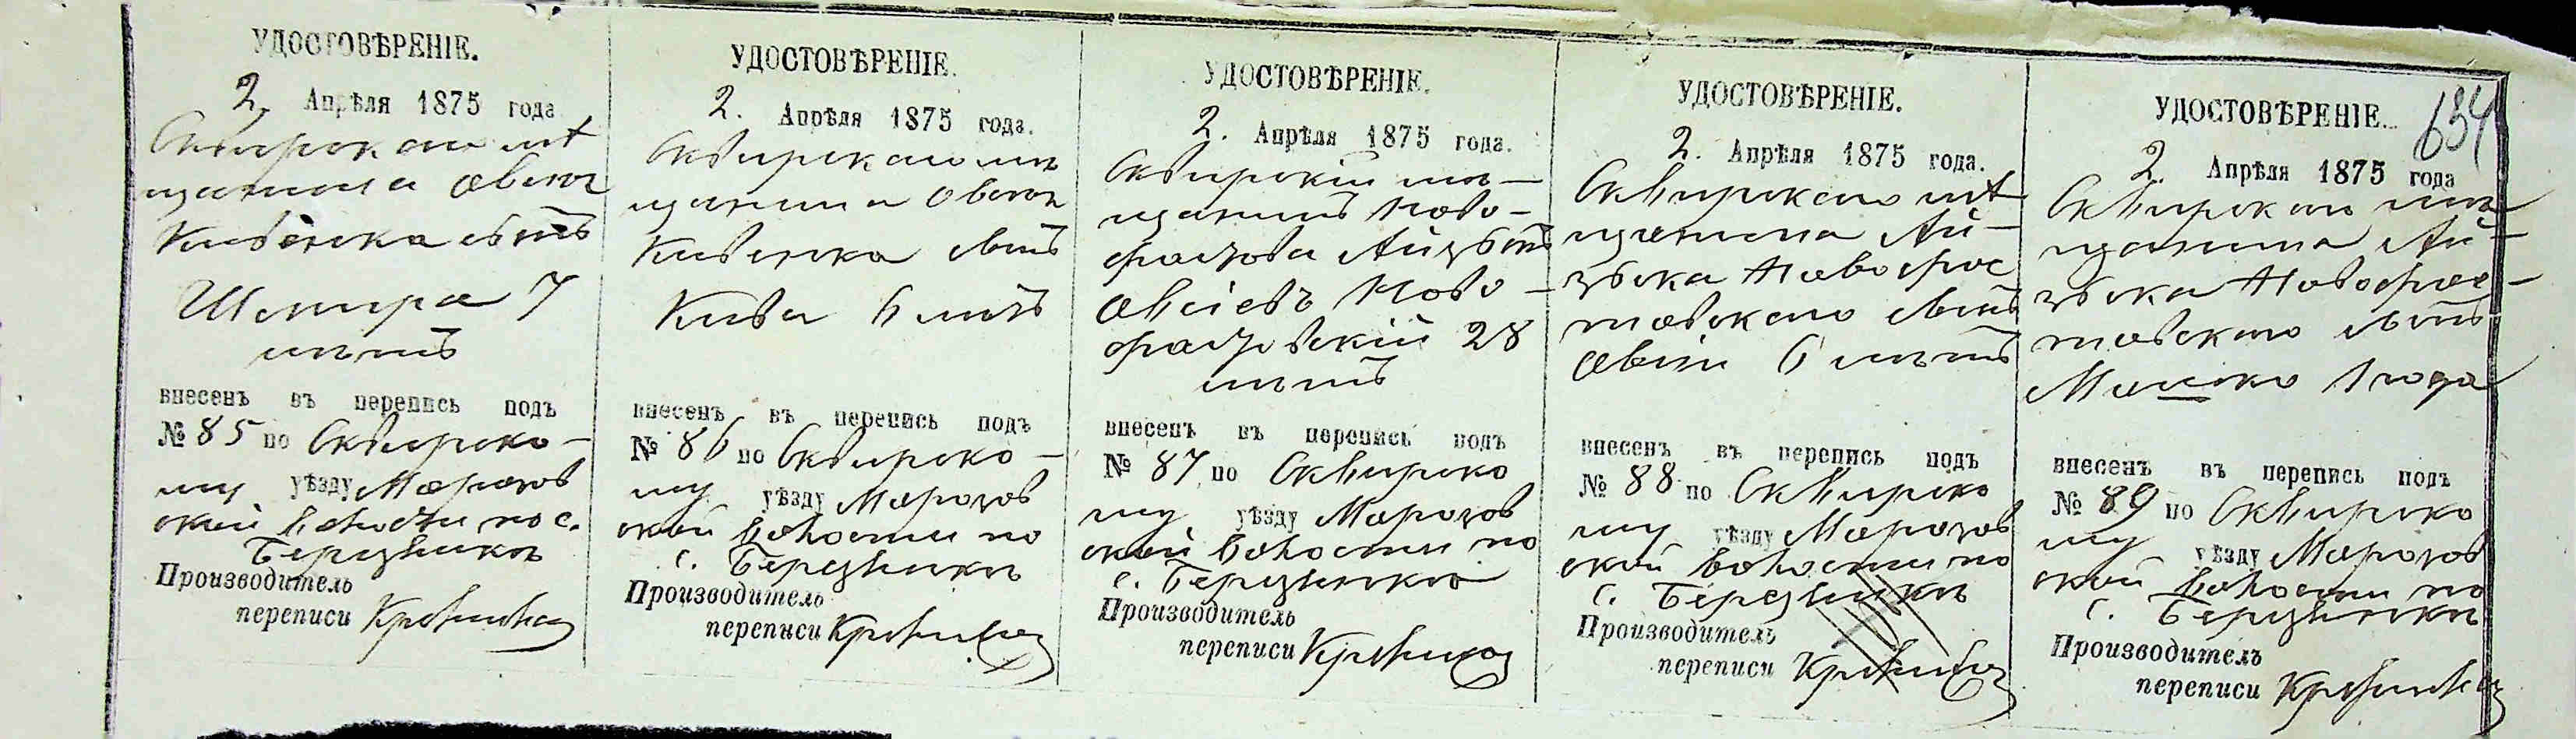 УДОСТОВѢРЕНІЕ.
2. Апрѣля 1875 года
Сквирскаго мѣ
щанина Овсѣя
Кивенка сынъ
Шмира 7
лѣтъ
внесенъ въ перепись подъ
№ 85 по Сквирско-
му уѣзду Морозов
ской волости по с.
Березянкѣ
Производитель
переписи
УДОСТОВѢРЕНІЕ.
2. Апрѣля 1875 года.
Сквирскаго мѣ
щанина Овсѣя
Кивенка сынъ
Кива 6 лѣтъ
внесенъ въ перепись подъ
№ 86 по Сквирско-
му уѣзду Морозов
ской волости по
с. Березянкѣ
Производитель
переписи
УДОСТОВѢРЕНІЕ.
2. Апрѣля 1875 года.
Сквирскій мѣ-
щанинъ Ново-
Овсіевъ Ново-
28
лѣтъ
внесенъ въ перепись подъ
№ 87 по Сквирско
му уѣзду Морозов
ской волости по
с. Березянкѣ
Производитель
переписи
УДОСТОВѢРЕНІЕ.
2. Апрѣля 1875 года.
Сквирскаго мѣ
щанина Ай-
зѣка Новофас
товскаго сынъ
Овсій 6 лѣтъ
внесенъ въ перепись подъ
№ 88 по Сквирско
му уѣзду Морозов
ской волости по
с. Березянкѣ
Производитель
переписи
УДОСТОВѢРЕНІЕ.
634
2. Апрѣля 1875 года
Сквирскаго мѣ-
щанина Ай-
зѣка Новофас-
товскаго сынъ
Мошко 1 года
внесенъ въ перепись подъ
№ 89 по Сквирско
му уѣзду Морозов
ской волости по
с. Березянкѣ
Производитель
переписи